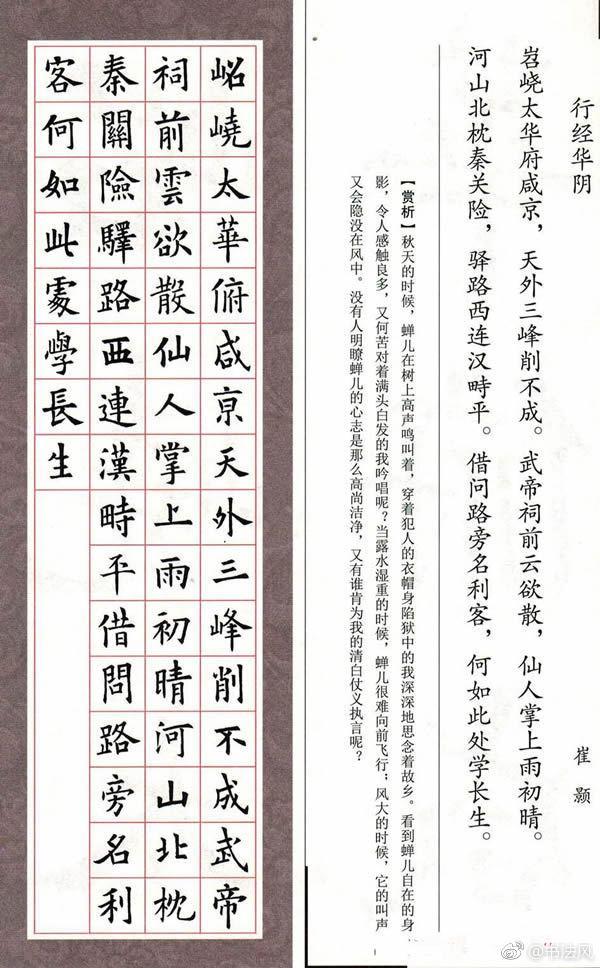 行经华阴 崔颢
岧峣太华府咸京，天外三峰削不成。武帝祠前云欲散，仙人掌上雨初晴。
河山北枕秦关险，驿路西连汉畤平。借问路旁名利客，何如此处学长生。
【赏析】秋天的时候，蝉儿在树上高声鸣叫着，穿着犯人的衣帽身陷狱中的我深深地思念着故乡。看到蝉儿自在的身
影，令人感触良多，又何苦对着满头白发的我吟唱呢？当露水湿重的时候，蝉儿很难向前飞行；风大的时候，它的叫声
又会隐没在风中。没有人明瞭蝉儿的心志是那么高尚洁净，又有谁肯为我的清白仗义执言呢？
岹嶢太華俯咸京天外三峰削不成武帝
祠前雲欲散仙人掌上雨初晴河山北枕
秦關險驛路西連漢時平借問路旁名利
客何如此處學長生
@书法风